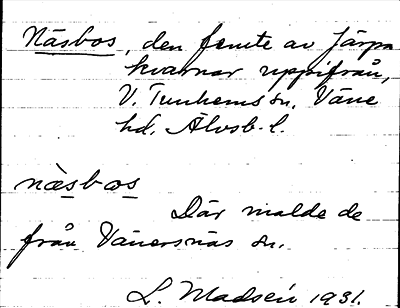 Näsbos, den femte av Järpa
kvarnar uppifrån,
V. Tunhems sn. Väne
hd. Älvsb. l.
næsbos
Där malde de
från Vänersnäs sn.
L. Madsén 1931.